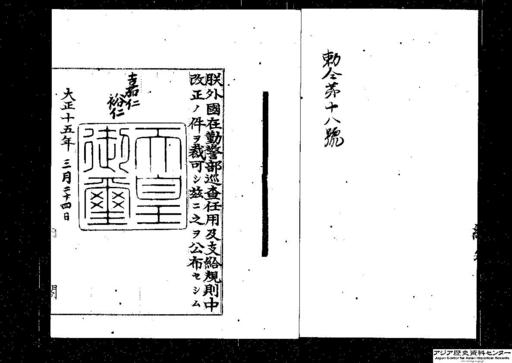 勅令第十八號
朕外國在勤警部巡査任用及支給規則中
改正ノ件ヲ裁可シ玆ニ之ヲ公布セシム
嘉仁
裕仁
天皇御璽
大正十五年三月二十四日
アジア歴史資料センター
Japan Center for Asian Historical Records